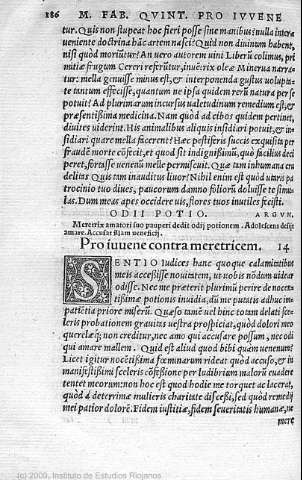 186 M. FAB. QVINT. PRO IVVENE
tur. Quis non stupeat hoc fieri posse sine manibus? nulla interueniente doctrina hãc artem nasci? Quid non diuinum habent,
nisi quòd moriũtur? An vero autorem uini Liberũ colimus, primitias frugum Cereri refertur, inuẽtrix oleæ Minerua narratur:
mella genuisse minus est, & interponenda gustus voluptatem effecisse, quantum ne ipsa quidem rerũ natura per se
potuit? Ad plurimarum incursus ualetudinum remedium est, & præsentissima medicina. Nam quòd ad cibos quidem pertinet,
diuites uiderint. His animalibus aliquis insidiari potuit, & insidiari quare mella facerent? Hæc pestiferis succis exquisitis per
fraudẽ morte cõfecit, & quod sit indignissimũ, quò facilius deciperet, fortasse uenenũ melle permiscuit. Quæ tam inhumana crudelitas
Quis tam inauditus liuor? Nihil enim est quòd utaris patrocinio tuo diues, paucorum damno florũ doluisse te simulas.
Dum meas apes occidere uis, flores tuos inutiles fecisti.
ODII POTIO. ARGVM.
Meretrix amatori suo pauperi dedit odij potionem. Adolescens desijt
amare. Accusat illam veneficij.
Pro iuuene contra meretricem. 14
SENTIO Iudices hanc quoque calamitatibus
meis accessisse nouitatem, ut nobis nõdum uideatur
odisse. Nec me præterit plurimũ perire de nocentissimæ
potionis inuidia, dũ me putatis adhuc impatiẽtia
priore miserũ. Quæso tamẽ uel hinc totam delati sceleris
probationem grauitas uestra prospiciat, quòd dolori meo
querelæq; non creditur, nec amo qui accusare possum, nec odi
qui amare mallem. Quid est aliud quod bibi quàm uenenum?
Licet igitur nocẽtissima fœminarum rideat quòd accuso, & in
manifestissimi sceleris cõfessione per ludibriam malorũ euadere
tentet meorum: non hoc est quod hodie me torquet ac lacerat,
quòd à deterrima mulieris charitate discessi, sed quòd remedij
mei patior dolorẽ. Fidem iustitiæ, fidem seueritatis humanæ, ne
mere
(c) 2009. Instituto de Estudios Riojanos